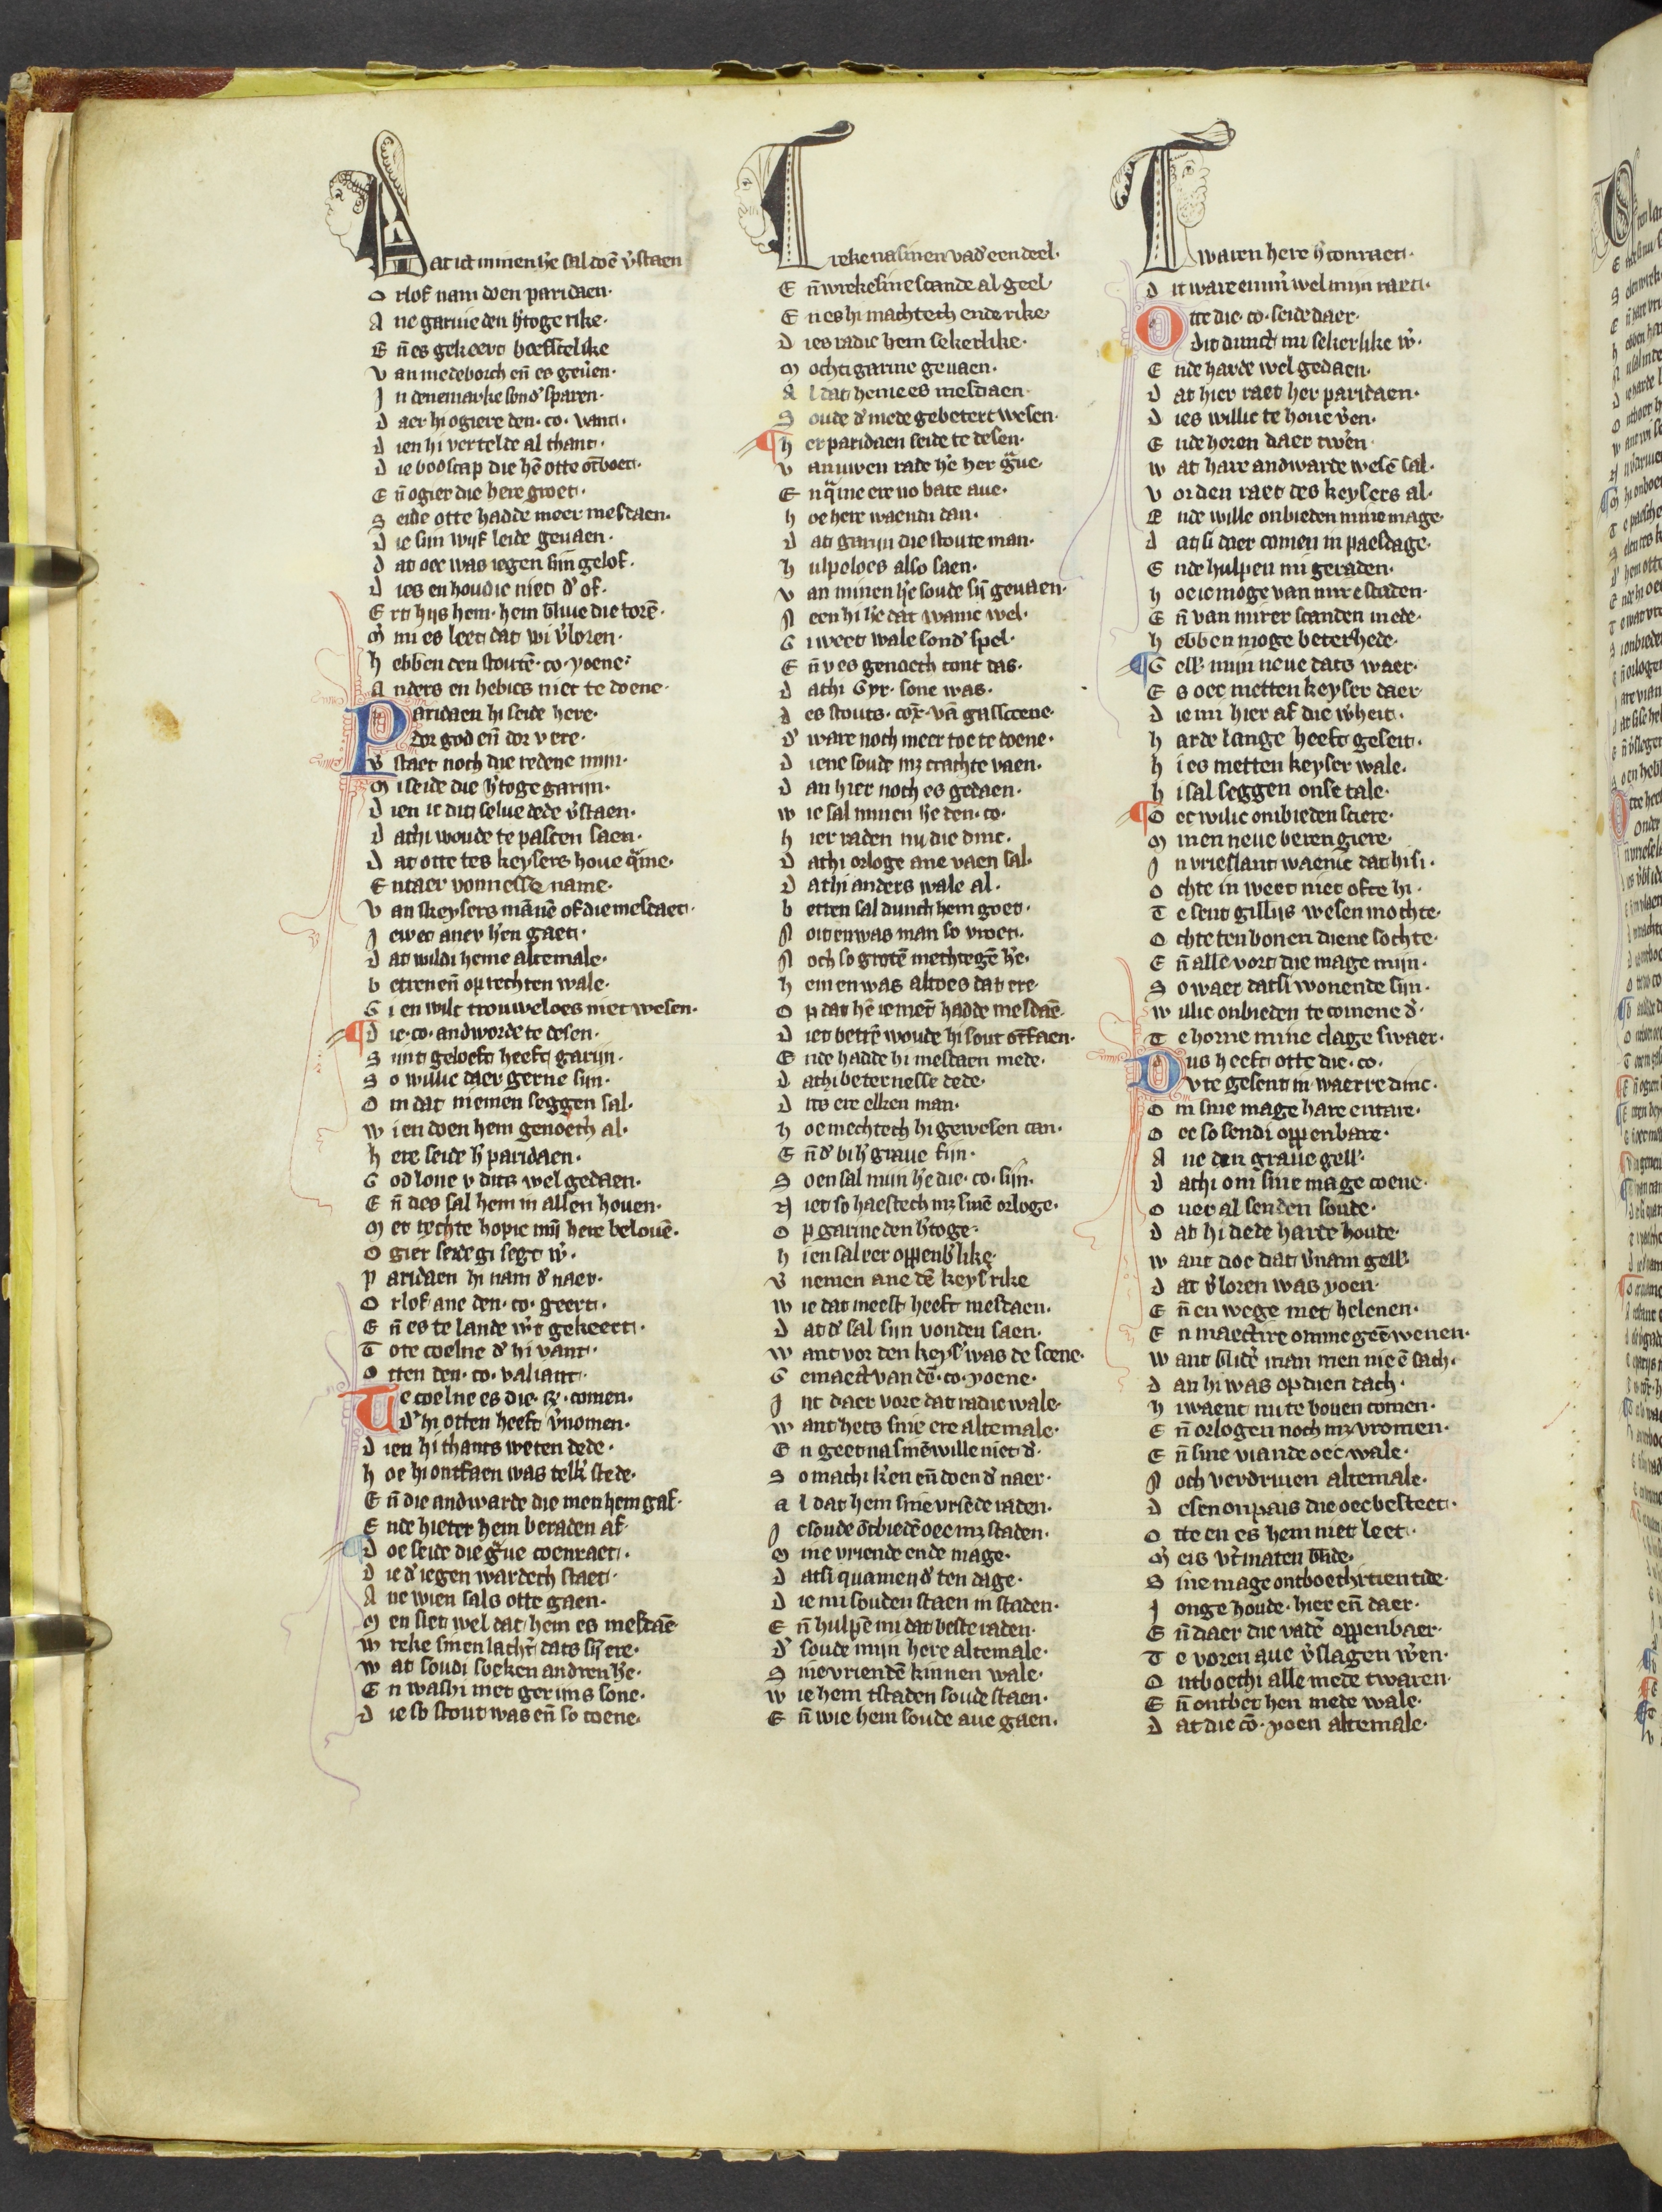 Dat ict minen h̓e sal doē v̓staen
Orlof nam doen paridaen·
Ane garine den h̓toge rike·
Eñ es gekeert hoefscelike
Van medeborch eñ es geu̓en·
In denemarke sond̓ sparen·
Daer hi ogiere den·co·vant·
Dien hi vertelde al thant·
Die bodscap die hē otte ōtboet·
Eñ ogier die here groet·
Seide otte hadde meer mesdaen·
Die sijn wijf leide geuaen·
Dat oec was iegen sijn gelof·
Dies en houdic niet d̓ of·
Ert hijs hem·hem bliue die torē·
Mi es leet dat wi v̓loren·
Hebben den stoutē·co·yoene·
Anders en hebics niet te doene·
Paridaen hi seide here·
Dor god eñ dor v ere·
V̓staet noch die redene mijn·
Mi seide die h̓toge garijn·
Dien ic dit selue dede v̓staen·
Dat hi woude te pascen saen·
Dat otte tes keysers houe q̄me·
Entaer vonnesse name·
Van skeysers mānē of die mesdaet·
Ic weet aner h̓en gaet·
Dat wildi heme altemale·
Betren eñ oprechten wale·
Gi en wilt trouweloes niet wesen·
Die·co·andworde te desen·
Sint geloeft heeft garijn·
So willic daer gerne sijn·
Om dat niemen seggen sal·
Wi en doen hem genoech al·
Here seide h̓ paridaen·
God loue v dits wel gedaen·
Eñ des sal hem in allen houen·
Met rechte hopic mijn here belouē·
Ogier seide gi segt w̓·
Paridaen hi nam d̓ naer·
Orlof ane den·co·geert·
Eñ es te lande w̓t gekeert·
Tote coelne d̓ hi vant·
Otten den·co·valiant·
Te coelne es die·r̄·comen·
D̓ hi otten heeft v̓nomen·
Dien hi thants weten dede·
Hoe hi ontfaen was telk̓ stede·
Eñ die andwarde die men hem gaf·
Ende hieter hem beraden af·
Doe seide die g̓ue coenraet·
Die d̓ iegenwardech staet·
Ane wien sals otte gaen·
Men siet wel dat hem es mesdaē·
Wreke sinen lacht̓ dats sij ere·
Wat soudi soeken andren h̓e·
En washi niet gerijns sone·
Die so stout was eñ so coene·
Wreke na sinen vad̓ een deel·
Eñ wreke sine scande al geel·
En es hi machtech ende rike·
Dies radic hem sekerlike·
Mochti garine geuaen·
Al dat heme es mesdaen·
Soude d̓ mede gebetert wesen·
Her paridaen seide te desen·
Van uwen rade h̓e her g̓ue·
En q̄me ere no bate aue·
Hoe here waendi dan·
Dat garijn die stoute man·
Hulpeloes also saen·
Van minen h̓e soude sij geuaen·
Neen hi h̓e dat wanic wel·
Gi weet wale sond̓ spel·
Eñ v es genoech cont das·
Dat hi Gyr·sone was·
Des stouts·cor̄·vā gasscoene·
D̓ ware noch meer toe te doene·
Diene soude mz crachte vaen·
Dan hier noch es gedaen·
Wie sal minen h̓e den·co·
Hier raden nu die dinc·
Dat hi orloge ane vaen sal·
Dat hi anders wale al·
Betten sal dunct hem goet·
Noit en was man so vroet·
Noch so grotē mechtegē h̓e·
Hem en was altoes dat ere·
Op dat hē iemēt hadde mesdaē·
Diet betrē woude hi sout ōtfaen·
Ende hadde hi mesdaen mede·
Dat hi beternesse dede·
Dits ere elken man·
Hoe mechtech hi gewesen can·
Eñ d̓ bi h̓ graue fijn·
Soen sal mijn h̓e die·co·sijn·
Niet so haestech mz sinē orloge·
Op garine den h̓toge·
Hi en sal eer oppenb̓like·
Vernemen ane dē keys̓ rike
Wie dat meest heeft mesdaen·
Dat d̓ sal sijn vonden saen·
Want vor den keys̓ was de scene·
Gemaect van dē·co·yoene·
Int daer vore dat radic wale·
Want hets sine ere altemale·
En geet na sinē wille niet d̓·
So mach i k̓en eñ doen d̓ naer·
Al dat hem sine vrienden raden·
Ic soude ōtbiedē oec mz staden·
Mine vriende ende mage·
Dat si quamen d̓ ten dage·
Die mi souden staen in staden·
Eñ hulpē mi dat beste raden·
D̓ soude mijn here altemale·
Sine vriendē kinnen wale·
Wie hem tstaden soude staen·
Eñ wie hem soude aue gaen·
Twaren here h̓ conraet·
Dit ware emm̄ wel mijn raet·
Otte die·co·seide daer·
Dit dunct mi sekerlike w̓·
Ende harde wel gedaen·
Dat hier raet her paridaen·
Dies willic te houe v̓en·
Ende horen daer tw̓en·
Wat hare andwarde wesē sal·
Vor den raet des keysers al·
Ende wille onbieden mine mage·
Dat si daer comen in paesdage·
Ende hulpen mi geraden·
Hoe ic moge van mire scaden·
Eñ van mirer scanden mede·
Hebben moge beterhede·
Gell̓ mijn neue dats waer·
Es oec metten keyser daer·
Die mi hier af die w̓heit·
Harde lange heeft geseit·
Hi es metten keyser wale·
Hi sal seggen onse tale·
Oec willic ombieden sciere·
Minen neue berengiere·
In vrieslant waenic dat hi si·
Ochte in weet niet ofte hi·
Te sent gillijs wesen mochte·
Ochte ten bonen diene sochte·
Eñ alle vort die mage mijn·
So waer dat si wonende sijn·
Willic onbieden te comene d̓·
Te horne mine clage swaer·
Dus heeft otte die·co·
Vte gesent in waerre dinc·
Om sine mage hare entare·
Oec so sendi oppenbare·
Ane den graue gell̓·
Dat hi om̄ sine mage coene·
Ouer al senden soude·
Dat hi dede harde houde·
Want doe dat v̓nam gell̓·
Dat v̓loren was yoen·
Eñ en wege met helenen·
En maectire omme geē wenen·
Want blidē man men nie ē sach·
Dan hi was op dien dach·
Hi waent nu te bouen comen·
Eñ orlogen noch mz vromen·
Eñ sine viande oec wale·
Noch verdriuen altemale·
Desen onpais die oec besteet·
Otte en es hem niet leet·
Meis vt̓maten blide·
Sine mage ontboet hi tien tide·
Jonge houde·hier eñ daer·
Eñ daer die vadē oppenbaer·
Te voren aue v̓slagen w̓en·
Ontboet hi alle mede twaren·
Eñ ontbet hen mede wale·
Dat die cō·yoen altemale·